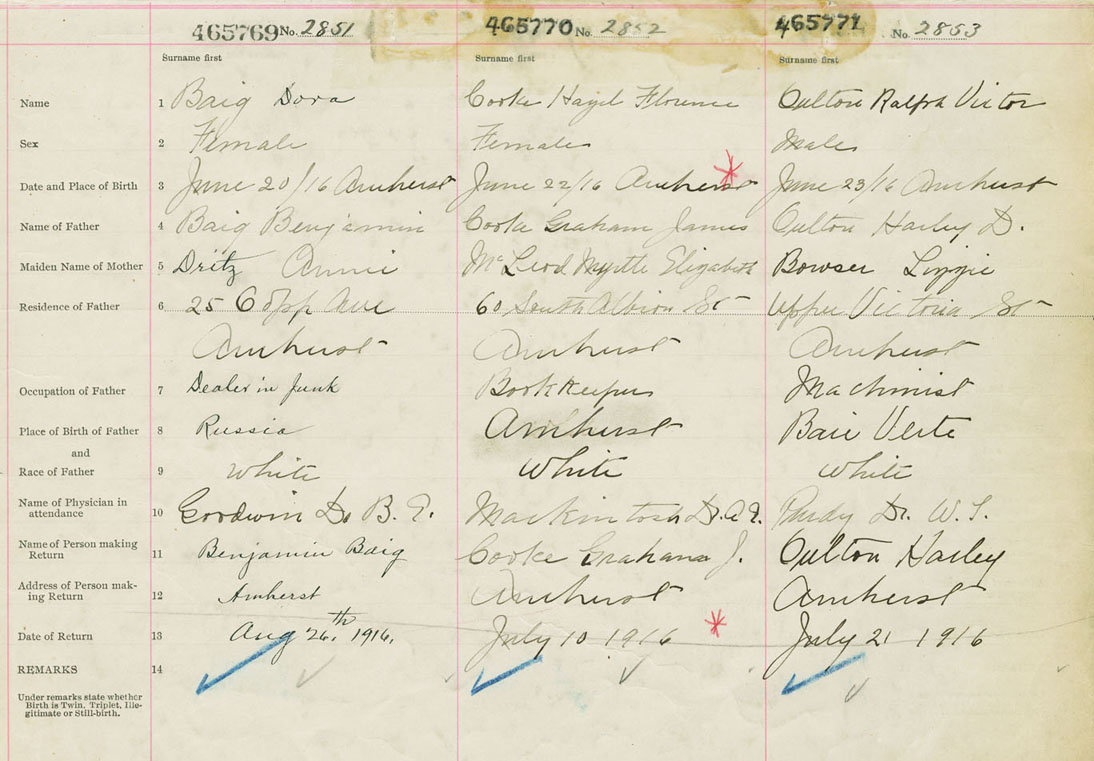 465769 No. 2851 465770 No. 2852 465771 No. 2853
Surname first Surname first Surname first
Name 1 Baig Dora Cooke Hazel Florence Oulton Ralph Victor
Sex 2 Female Female Male
Date and Place of Birth 3 June 20/16 Amherst June 22/16 Amherst June 23/16 Amherst
Name of Father 4 Baig Benjamin Cooke Graham James Oulton Harley D.
Maiden Name of Mother 5 Dritz Annie McLeod Myrtle Elizabeth Bowser Lizzie
Residence of Father 6 25 Copp Ave 60 South Albion St Upper Victoria St
Amherst Amherst Amherst
Occupation of Father 7 Dealer in Junk Bookkeeper Machinist
Place of Birth of Father 8 Russia Amherst Baie Verte
and
Race of Father 9 White White White
Name of Physician in
attendance 10 Goodwin Dr B. E. Mackintosh Dr. A. E. Purdy Dr. W. T.
Name of Person making
Return 11 Benjamin Baig Cooke Graham J. Oulton Harley
Address of Person mak-
ing Return 12 Amherst Amherst Amherst
Date of Return 13 Aug 26th, 1916, July 10 1916 July 21 1916
REMARKS 14
Under remarks state whether
Birth is Twin, Triplet, Ille-
gitimate or Still-birth.